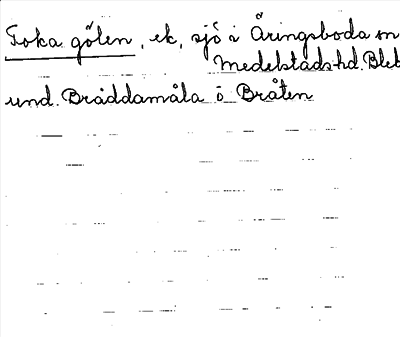 Toka gölen, ek, sjö i Äringsboda sn
Medelstads hd. Blek
und. Bräddamåla o Bråten